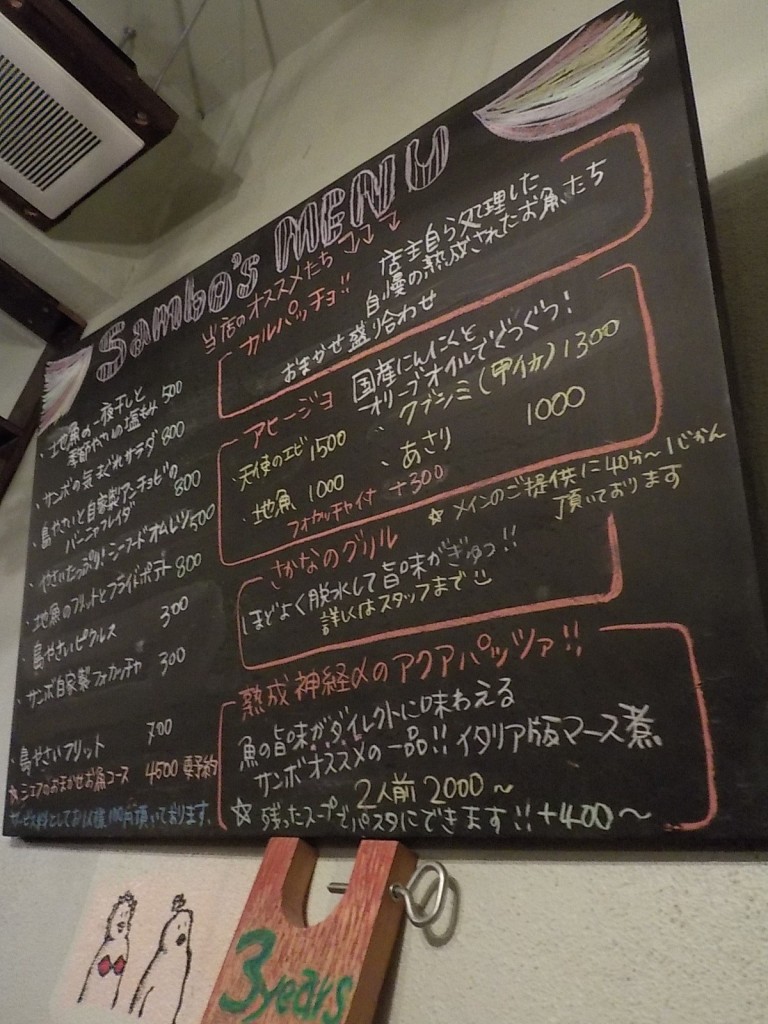 Sambo's MENU
当店のオススメたち↓↓↓
・地魚の一夜干しと
季節やさいの塩もみ 500
・サンボの気まぐれサラダ 800
・島やさいと自家製アンチョビの
バーニャフレイダ 800
・やさいたっぷり!シーフードオムレツ 500
・地魚のフリットとフライドポテト 800
・島やさいピクルス 300
・サンボ自家製フォカッチャ 300
・島やさいフリット 700
☆シェフのおまかせお魚コース 4500 要予約
サービス料としてお1人様100円頂いております。
カルパッチョ!!
店主自ら処理した
自慢の熟成されたお魚たち
おまかせ盛り合わせ
アヒージョ
国産にんにくと
オリーブオイルでぐつぐつ!
・天使のエビ 1500
・クブシミ(甲イカ) 1300
・地魚 1000
・あさり 1000
フォカッチャ付 +300
☆メインのご提供に40分~1じかん
頂いております
さかなのグリル
ほどよく脱水して旨味がぎゅっ!!
詳しくはスタッフまで
熟成神経〆のアクアパッツァ!!
魚の旨味がダイレクトに味わえる
サンボオススメの一品!!イタリア版マース煮
2人前 2000~
☆残ったスープでパスタにできます!!+400~
3years